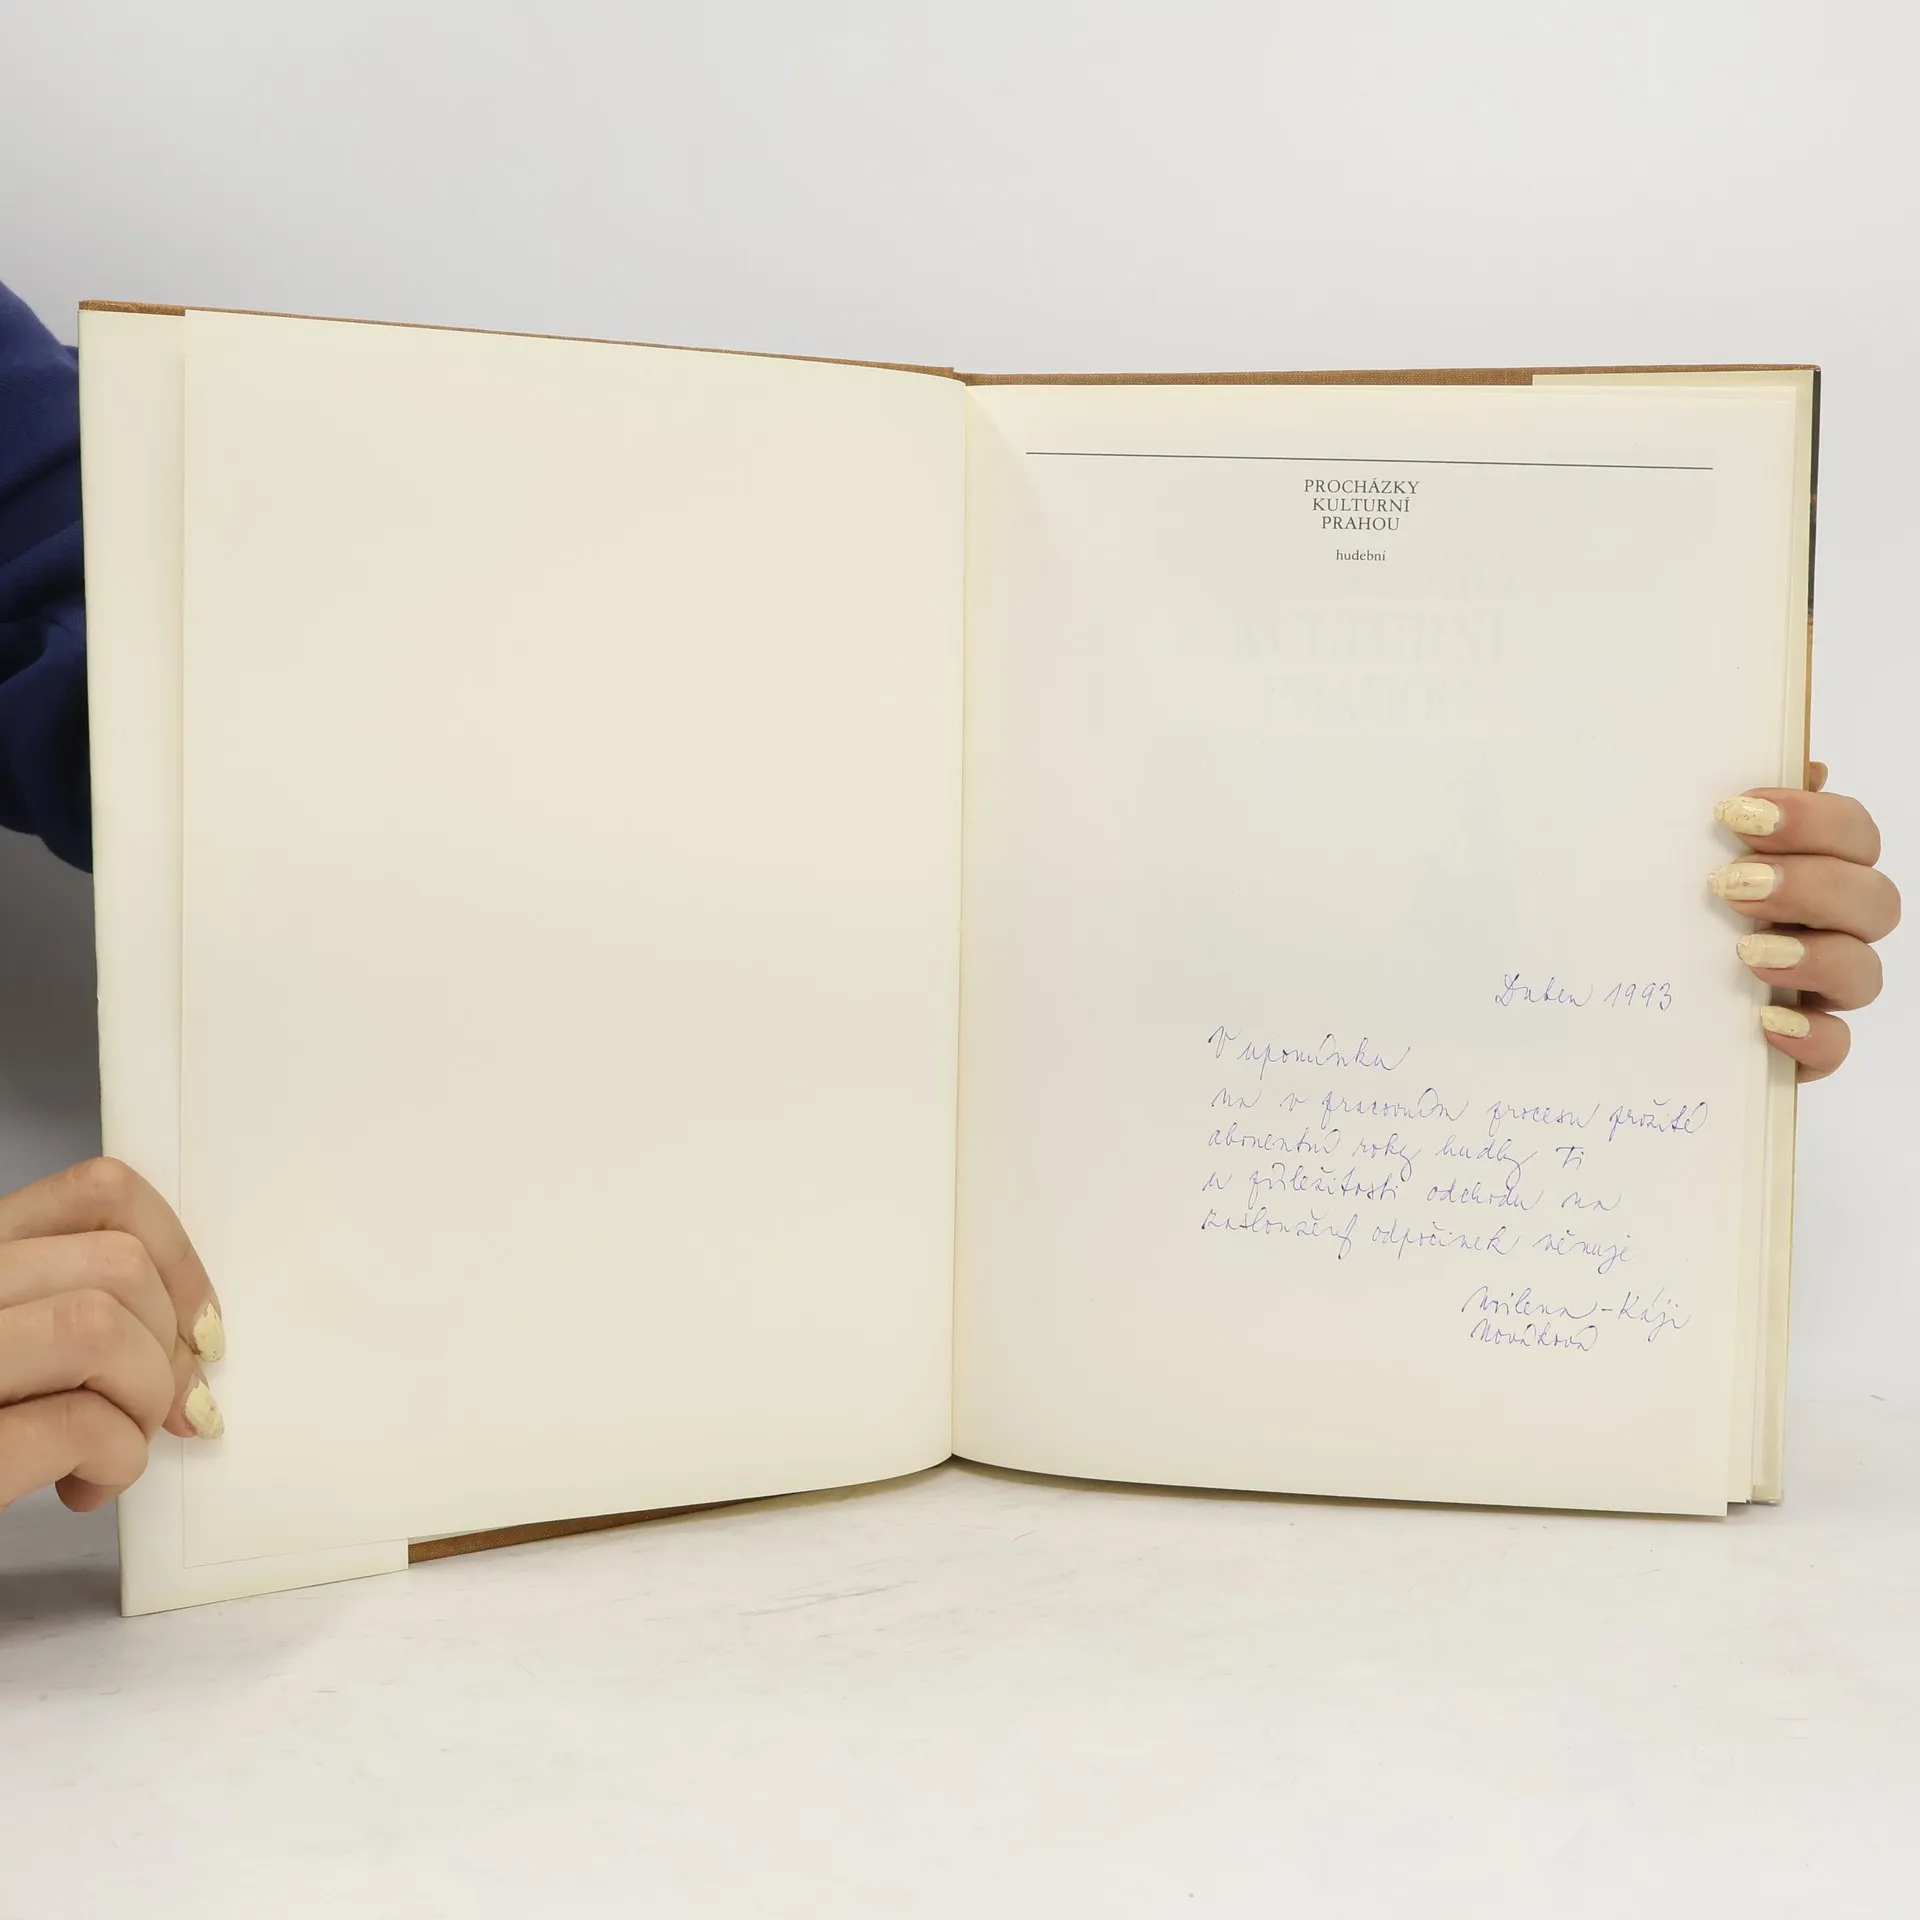 PROCHÁZKY
KULTURNÍ
PRAHOU
hudební
Duben 1993
V upomínku
na v pracovním procesu prožité
abonentní roky hudby Ti
u příležitosti odchodu na
zasloužený odpočinek věnuje
Milena - Káji
Nováková